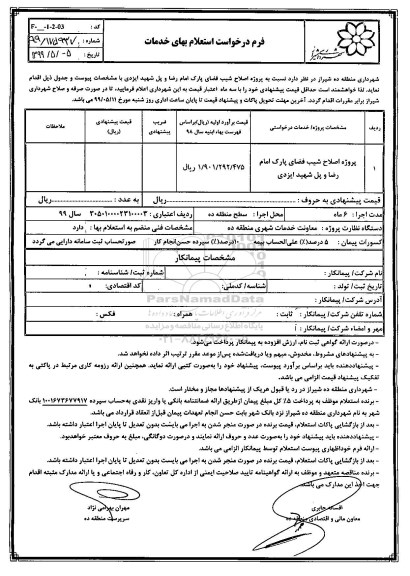 فرم درخواست استعلام بهای خدمات
کد : F-۰۰-1-2-03
شماره :
تاریخ : ۱۳۹۹/۵/۰۵
شهرداری منطقه ده شیراز در نظر دارد نسبت به پروژه اصلاح شیب فضای پارک امام رضا و پل شهید ایزدی با مشخصات پیوست و جدول ذیل اقدام
نماید. لذا خواهشمند است حداقل قیمت پیشنهادی خود را با سه ماه اعتبار قیمت به این شهرداری اعلام فرمایید، تا در صورت صرفه و صلاح شهرداری
شیراز برابر مقررات اقدام گردد. آخرین مهلت تحویل پاکات و پیشنهاد قیمت تا پایان ساعت اداری روز شنبه مورخ ۹۹/۰۵/۱۱ می باشد.
ردیف
مشخصات پروژه/ خدمات درخواستی
قیمت برآورد اولیه (ریال)براساس فهرست بهاء ابنیه سال ۹۸
ضریب پیشنهادی
قیمت پیشنهادی (ریال)
ملاحظات
۱
پروژه اصلاح شیب فضای پارک امام رضا و پل شهید ایزدی
۱/۹۰۱/۲۹۲/۴۷۵ ریال
قیمت پیشنهادی به حروف : ریال به عدد : ریال
مدت اجرا : ۶ ماه محل اجرا : سطح منطقه ده ردیف اعتباری : سال ۹۹
دستگاه نظارت پروژه : معاونت خدمات شهری منطقه ده مشخصات فنی منضم به استعلام بها : دارد
کسورات پیمان : ۵ درصد(٪) علی الحساب بیمه ۱۰درصد(٪) سپرده حسن انجام کار صورتحساب ثبت سامانه دارایی می گردد
مشخصات پیمانکار
نام شرکت/ پیمانکار : شماره ثبت/ شناسنامه :
تاریخ ثبت/ تولد : شناسه/ کدملی : کد اقتصادی :
آدرس شرکت/ پیمانکار :
شماره تلفن شرکت/ پیمانکار : ثابت : همراه : فکس :
مهر و امضاء شرکت/ پیمانکار :
- درصورت ارائه گواهی ثبت نام، ارزش افزوده به پیمانکار پرداخت می‌شود.
- به پیشنهادهای مشروط، مخدوش، مبهم و یا دریافت‌شده پس‌از موعد مقرر ترتیب اثر داده نخواهد شد.
- پیشنهاددهنده باید براساس برآورد پیوست، پیشنهاد خود را به‌صورت کتبی ارائه نماید. همچنین ارائه رزومه کاری مرتبط در پاکتی به
تفکیک پیشنهاد قیمت الزامی می باشد.
- شهرداری منطقه ده شیراز در رد یا قبول هریک از پیشنهادها مجاز و مختار است.
- برنده استعلام موظف به پرداخت ۵٪ کل مبلغ پیمان ازطریق ارائه ضمانتنامه بانکی یا واریز نقدی به‌حساب سپرده ۱۰۰۱۶۷۳۶۷۷۹۱۷ بانک
شهر به نام شهرداری منطقه ده شیراز نزد بانک شهر بابت حسن انجام تعهدات پیمان قبل‌از انعقاد قرارداد می‌باشد.
- بعد از بازگشایی پاکات استعلام، قیمت برنده در صورت منجر شدن به اجرا می بایست بدون تعدیل تا پایان اجرا اعتبار داشته باشد.
- پیشنهاددهنده باید پیشنهاد خود را به‌صورت عدد و حروف ارائه نمایند و درصورت دوگانگی، مبلغ به حروف معتبر خواهدبود.
- ارائه فرم خوداظهاری پیوست استعلام توسط پیمانکار الزامی می باشد.
- بعد از بازگشایی پاکات استعلام، قیمت برنده در صورت منجر شدن به اجرا می بایست بدون تعدیل تا پایان اجرا اعتبار داشته باشد.
- برنده مناقصه متعهد و موظف به ارائه گواهینامه تایید صلاحیت ایمنی از اداره کل تعاون، کار و رفاه اجتماعی و یا ارائه مدارک مثبته اقدام
جهت اخذ این مدارک می باشد.
افسانه جابری
معاون مالی و اقتصادی منطقه ده
مهران بهرامی نژاد
سرپرست منطقه ده
ParsNamadData
پایگاه اطلاع رسانی مناقصه و مزایده